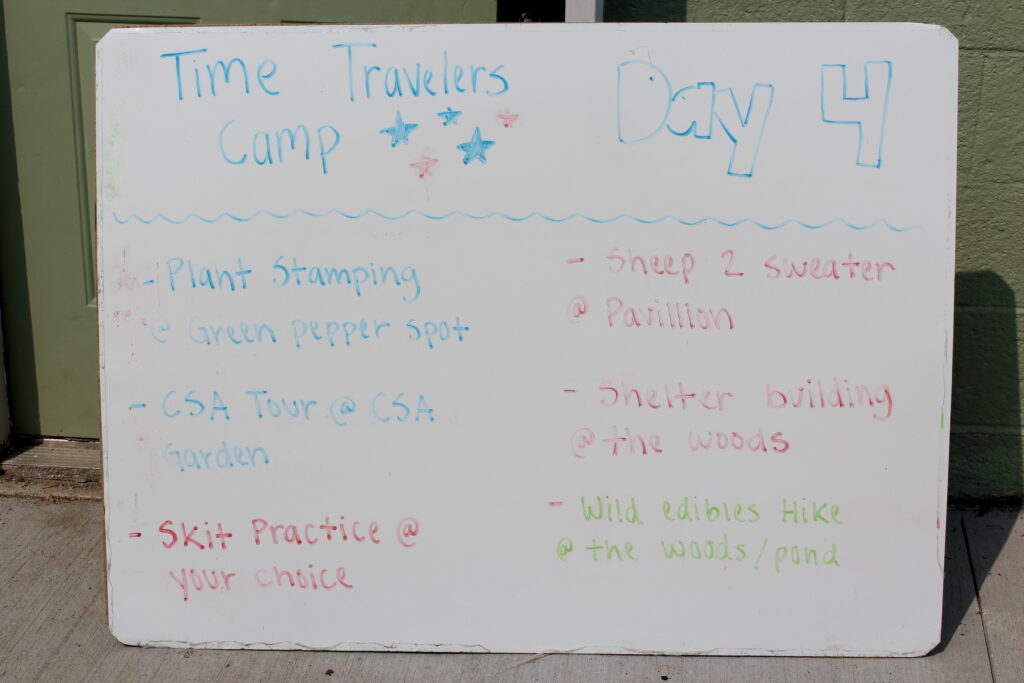 Time Travelers
Camp
Day 4
- Plant Stamping
@ Green pepper spot
- CSA Tour @ CSA
Garden
- Skit Practice @
your choice
- Sheep 2 sweater
@ Pavillion
- Shelter building
@ the woods
- Wild edibles Hike
@ the woods/pond